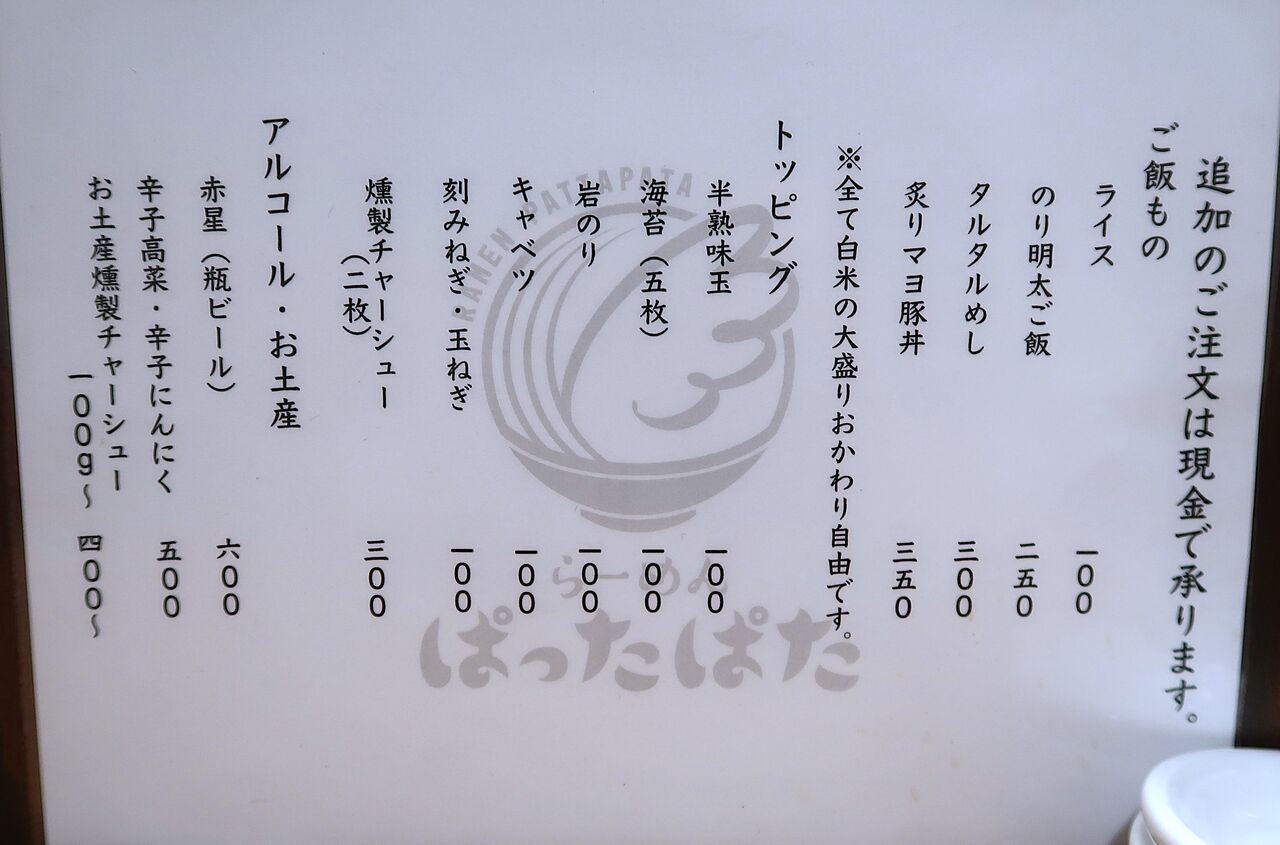 追加のご注文は現金で承ります。
ご飯もの
ライス 一〇〇
のり明太ご飯 二五〇
タルタルめし 三〇〇
炙りマヨ豚丼 三五〇
※全て白米の大盛りおかわり自由です。
トッピング
半熟味玉 一〇〇
海苔（五枚） 一〇〇
岩のり 一〇〇
キャベツ 一〇〇
刻みねぎ・玉ねぎ 一〇〇
燻製チャーシュー
（二枚） 三〇〇
アルコール・お土産
赤星（瓶ビール） 六〇〇
辛子高菜・辛子にんにく 五〇〇
お土産燻製チャーシュー
一〇〇g〜 四〇〇〜
RAMEN PATTAPATA
らーめん
ぱったぱた